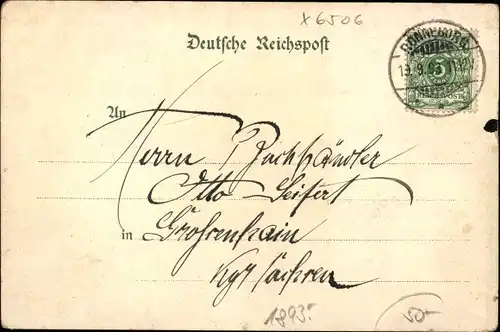 x 6506
Deutsche Reichspost
RONNEBURG
19.8.93
5
An
Herrn Buchhändler
Otto Seifert
in Großenhain
Kgr Sachsen
1893
50-